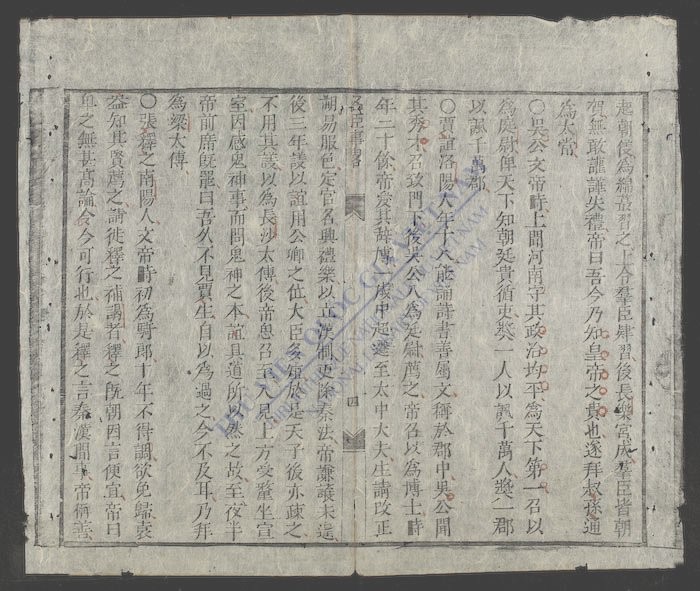 起朝儀為綿蕞習之上令羣臣肄習後長樂宮成羣臣皆朝
賀無敢讙譁失禮帝曰吾今乃知皇帝之貴也遂拜叔孫通
為太常
○吳公文帝時上聞河南守其政治均平為天下第一召以
為廷尉俾天下知朝廷貴循吏奬一人以諷千萬人奬一郡
以諷千萬郡
○賈誼洛陽人年十八能誦詩書善屬文稱於郡中吳公聞
其秀才召致門下後吳公入為廷尉薦之帝召以為博士時
年二十餘帝愛其辞博一歲中超遷至太中大夫生請改正
名臣事畧
四
朔易服色定官名興禮樂以立漢制更除秦法帝謙讓未遑
後三年議以誼用公卿之位大臣多短於是天子後亦疎之
不用其議以為長沙太傅後帝思召至入見上方受釐坐宣
室因感鬼神事而問鬼神之本誼具道所以然之故至夜半
帝前席既罷曰吾久不見賈生自以為過之今不及耳乃拜
為梁太傅
○張釋之南陽人文帝時初為騎郎十年不得調欲免歸袁
益知其賢薦之請徙釋之補謁者釋之既朝因言便宜帝曰
卑之無甚高論令今可行也於是釋之言秦漢間事帝稱善
THƯ VIỆN QUỐC GIA VIỆT NAM
BIBLIOTHEQUE NATIONALE DU VIETNAM
NATIONAL LIBRARY OF VIETNAM